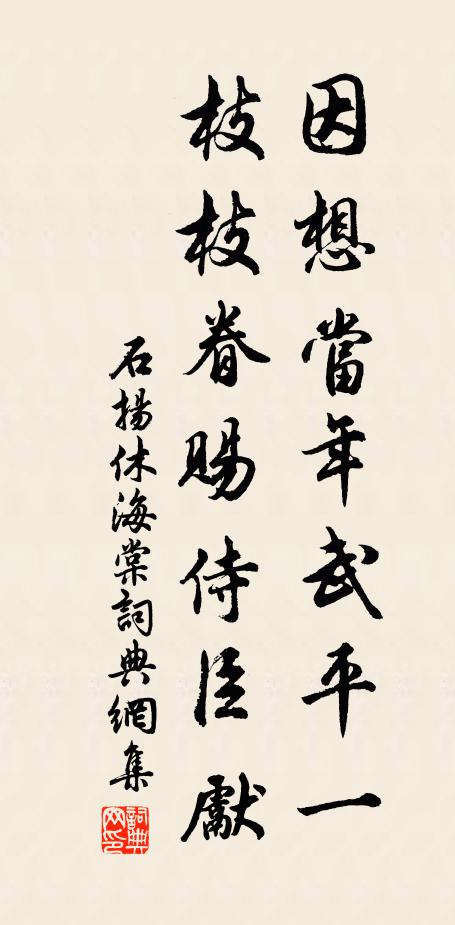 因想當年武平一
枝枝眷賜侍臣獻
石揚休海棠詞典網集
詞典網印